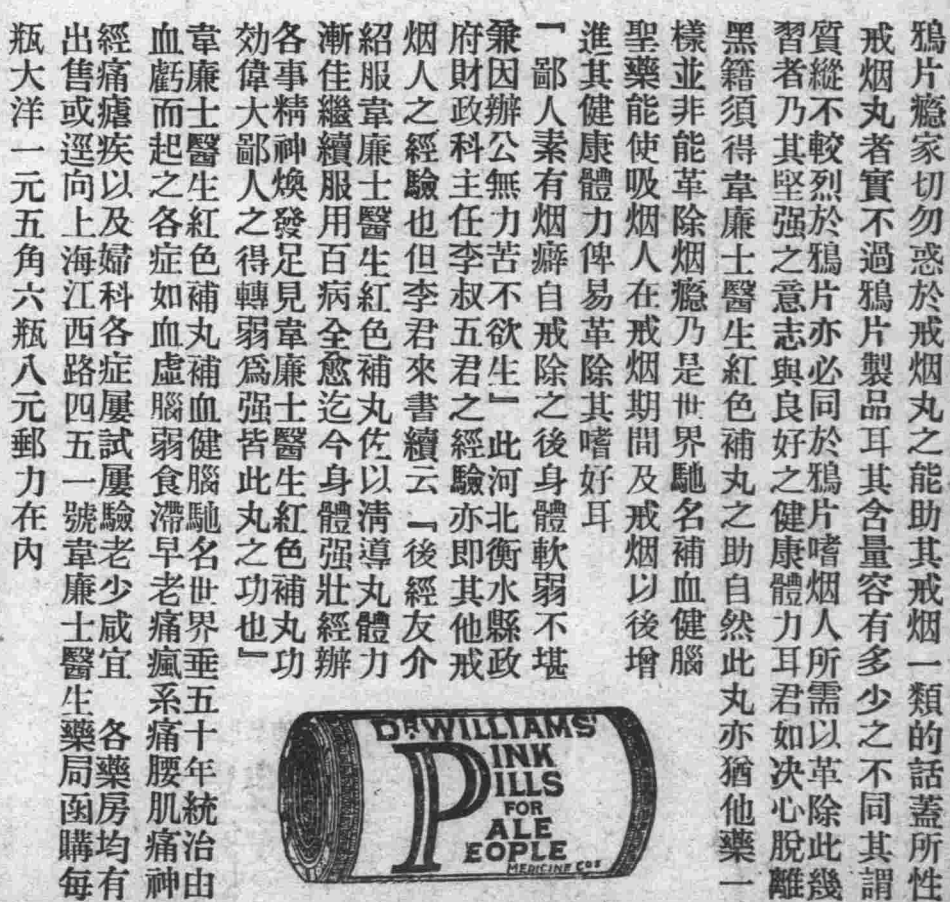 鴉片癮家切勿惑於戒烟丸之能助其戒烟一類的話蓋所性
戒烟丸者實不過鴉片製品耳其含量容有多少之不同其謂
質縱不較烈於鴉片亦必同於鴉片嗜烟人所需以革除此幾
習者乃其堅强之意志與良好之健康體力耳君如決心脫離
黑籍須得韋廉士醫生紅色補丸之助自然此丸亦猶他藥一
樣並非能革除烟癮乃是世界馳名補血健腦
聖藥能使吸烟人在戒烟期間及戒烟以後增
進其健康體力俾易革除其嗜好耳
『鄙人素有烟癖自戒除之後身體軟弱不堪
兼因辦公無力苦不欲生』此河北衡水縣政
府財政科主任李叔五君之經驗亦即其他戒
烟人之經驗也但李君來書續云『後經友介
紹服韋廉士醫生紅色補丸佐以淸導丸體力
漸佳繼續服用百病全愈迄今身體强壯經辦
各事精神煥發足見韋廉士醫生紅色補丸功
効偉大鄙人之得轉弱爲强皆此丸之功也』
韋廉士醫生紅色補丸補血健腦馳名世界垂五十年統治由
血虧而起之各症如血虛腦弱食滯早老痛瘋系痛腰肌痛神
經痛瘧疾以及婦科各症屢試屢驗老少咸宜 各藥房均有
出售或逕向上海江西路四五一號韋廉士醫生藥局函購每
瓶大洋一元五角六瓶八元郵力在內
DR WILLIAMS'
PINK
PILLS
FOR
PALE
PEOPLE
MEDICINE COS